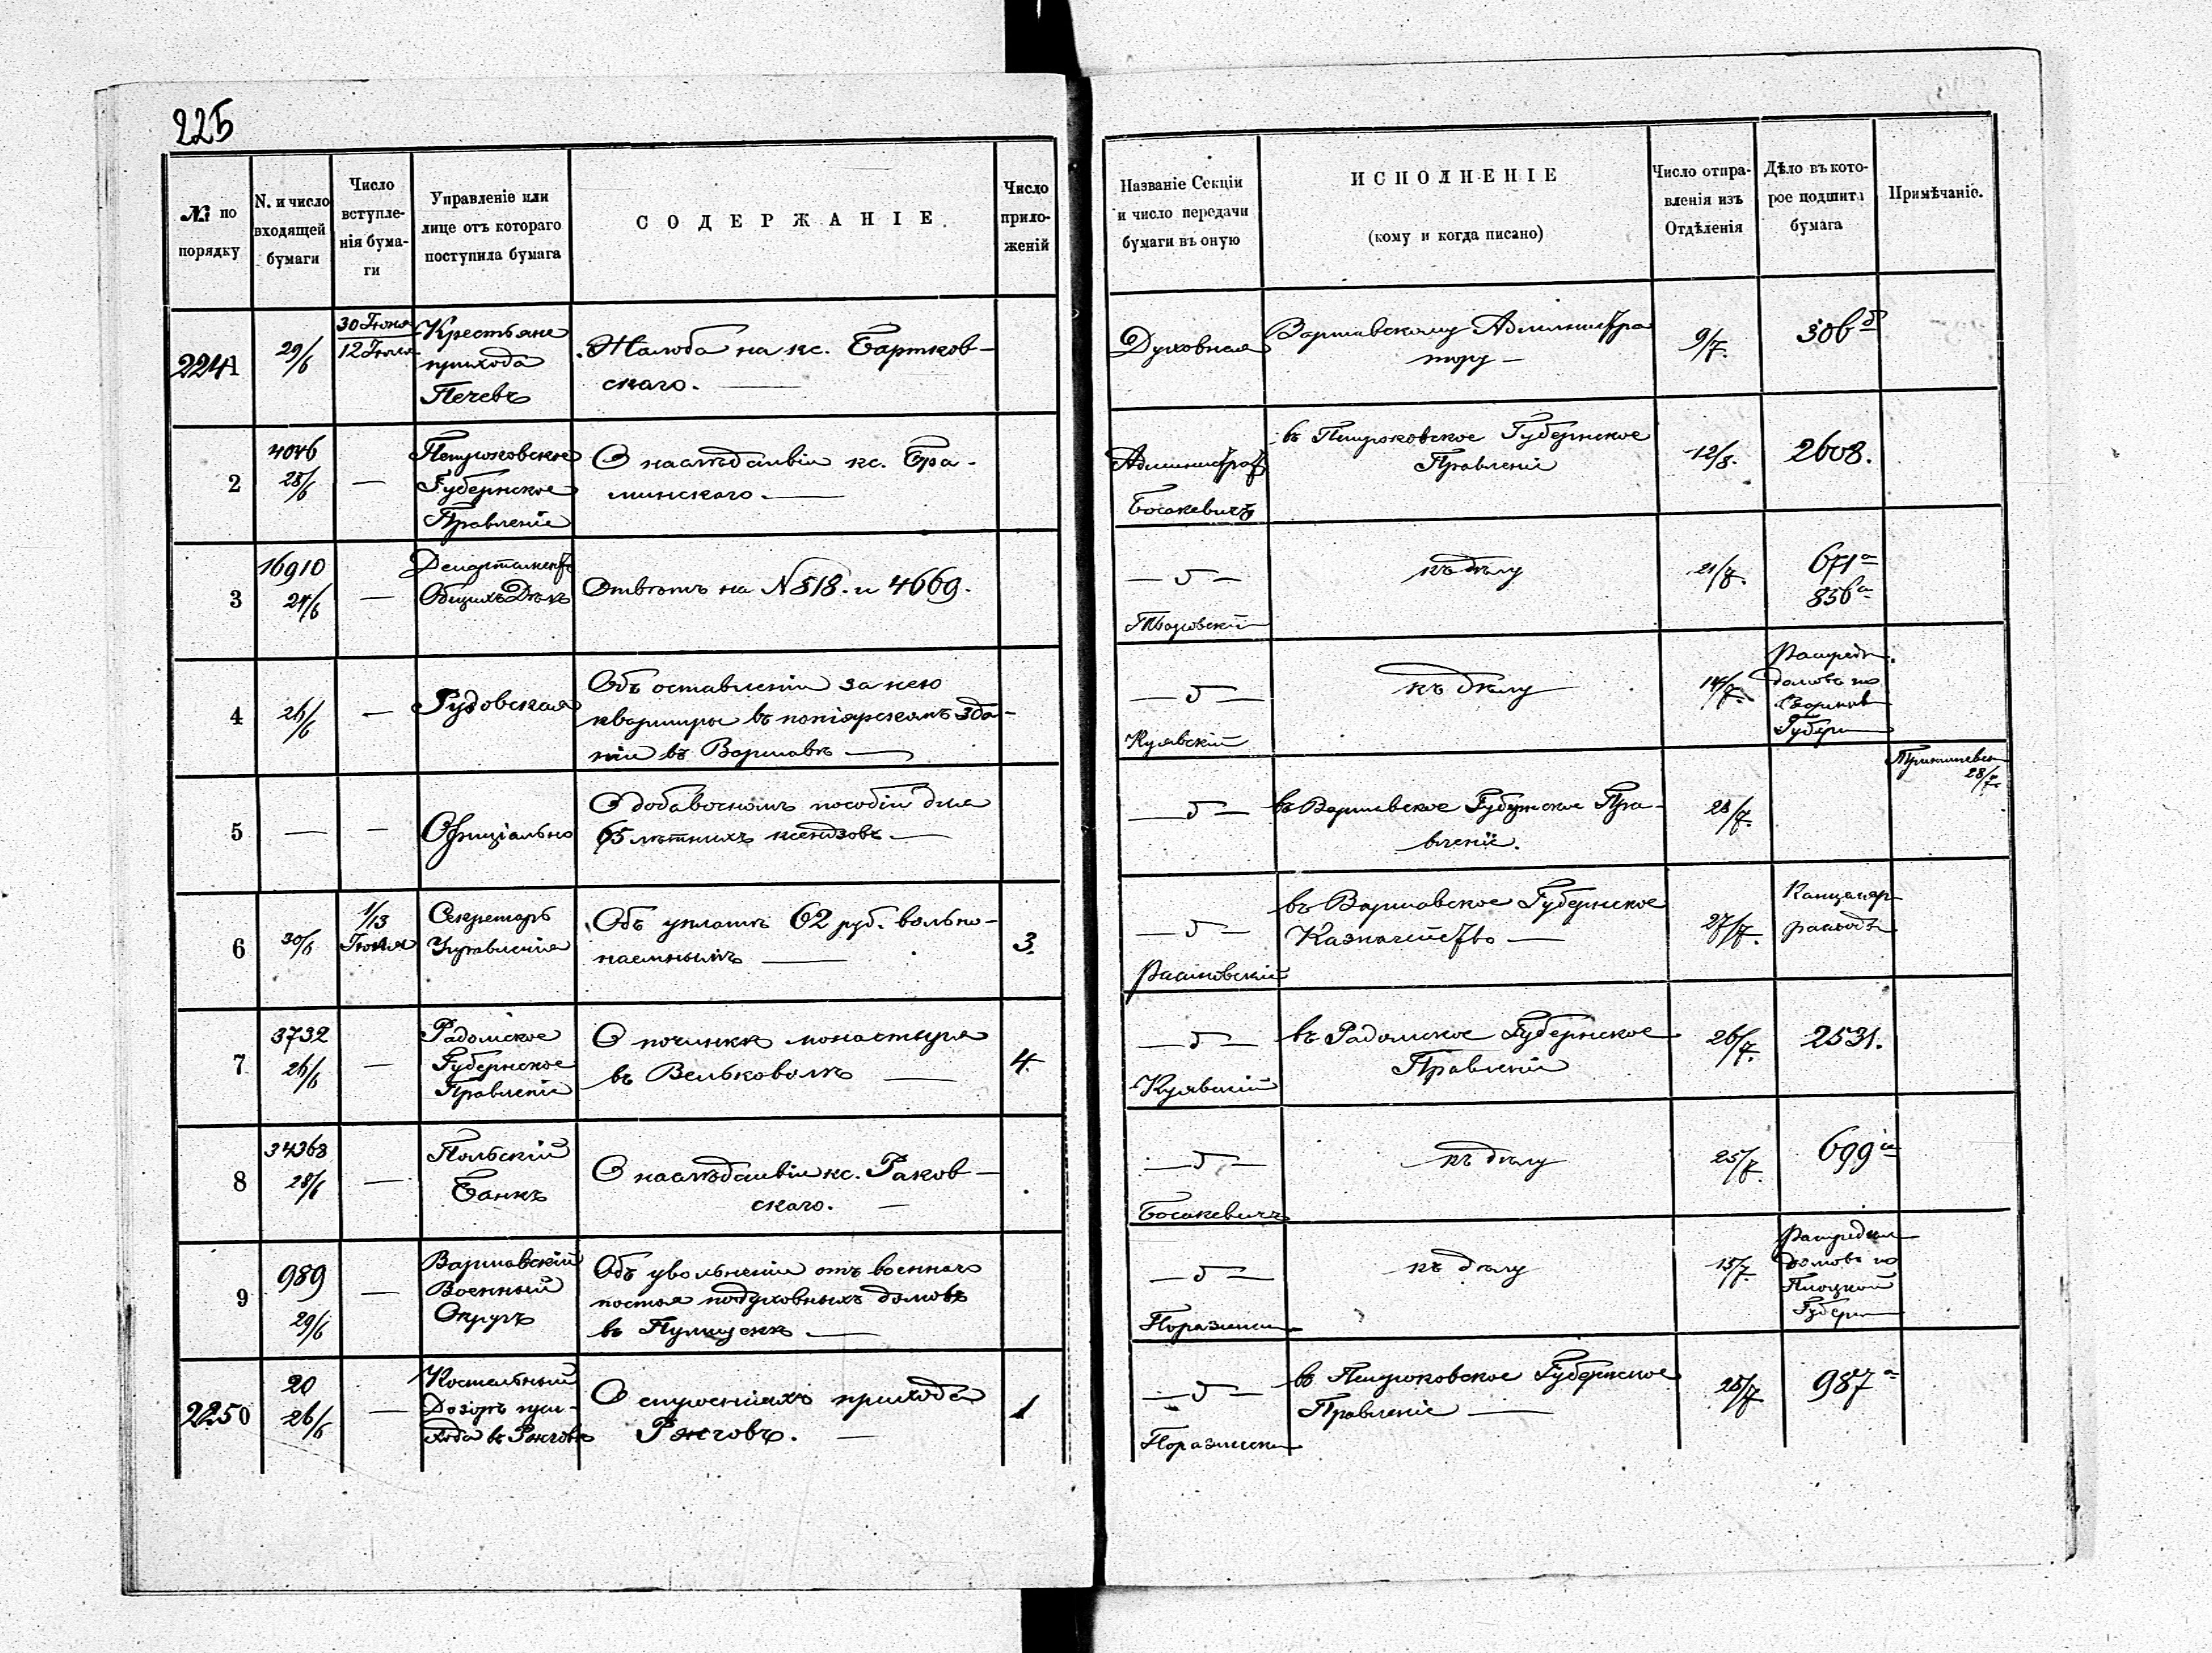 225
№ по порядку
N. и число входящей бумаги
Число вступле-
нія бума-
ги
Управленіе или
лице отъ котораго
поступила бумага
СОДЕРЖАНІЕ.
Число
прило-
женій
Названіе Секціи
и число передачи
бумаги въ оную
ИСПОЛНЕНІЕ
(кому и когда писано)
Число отпра-
вленія изъ
Отдѣленія
Дѣло въ кото-
рое подшита
бумага
Примѣчаніе.
2241
29/6
30 Іюня
12 Іюля
Крестьяне
прихода
Печевъ
Жалоба на кс. Бартков-
скаго. —
Духовная
Варшавскому Администра
тору —
9/7.
306 б
2
4046
28/6
—
Петроковское
Губернское
Правленіе
О наслѣдствіи кс. Бра-
минскаго. —
Администрат
Босакевичъ
въ Петроковское Губернское
Правленіе
12/8.
2608.
3
16910
24/6
—
Департаментъ
Общихъ Дѣлъ
Отвѣтъ на N 818. и 4669.
къ дѣлу
21/7.
671 а
856 а
4
26/6
—
Рудовская
Объ оставленіи за нею
квартиры въ попіярскомъ зда-
ніи въ Варшавѣ —
Куявскій
къ дѣлу
14/7.
домовъ по
Губерн
5
—
—
Офиціально
О добавочномъ пособіи для
65 лѣтнихъ ксендзовъ —
въ Варшавское Губернское Пра-
вленіе.
28/7.
28/7.
6
30/6
1/13
Іюля
Секретарь
Управленія
Объ уплатѣ 62 руб. вольно-
наемнымъ —
3.
въ Варшавское Губернское
Казначейство —
27/7.
Канцеляр
расходы
7
3732
26/6
—
Радомское
Губернское
Правленіе
О починкѣ монастыря
въ Вельковолѣ —
4.
Куявскій
въ Радомское Губернское
Правленіе
26/7.
2531.
8
34368
28/6
—
Польскій
Банкъ
О наслѣдствіи кс. Раков-
скаго. —
Босакевичъ
къ дѣлу
25/7.
699 а
9
989
29/6
—
Варшавскій
Военный
Округъ
Объ увольненіи отъ военнаго
постоя подуховныхъ домовъ
въ Пултускѣ —
къ дѣлу
15/7.
домовъ по
Плоцкой
Губерн
2250
20
26/6
—
Костельный
Дозоръ при-
хода въ Рженговѣ
О строеніяхъ прихода
Ржговъ. —
1
въ Петроковское Губернское
Правленіе —
25/7
987 а